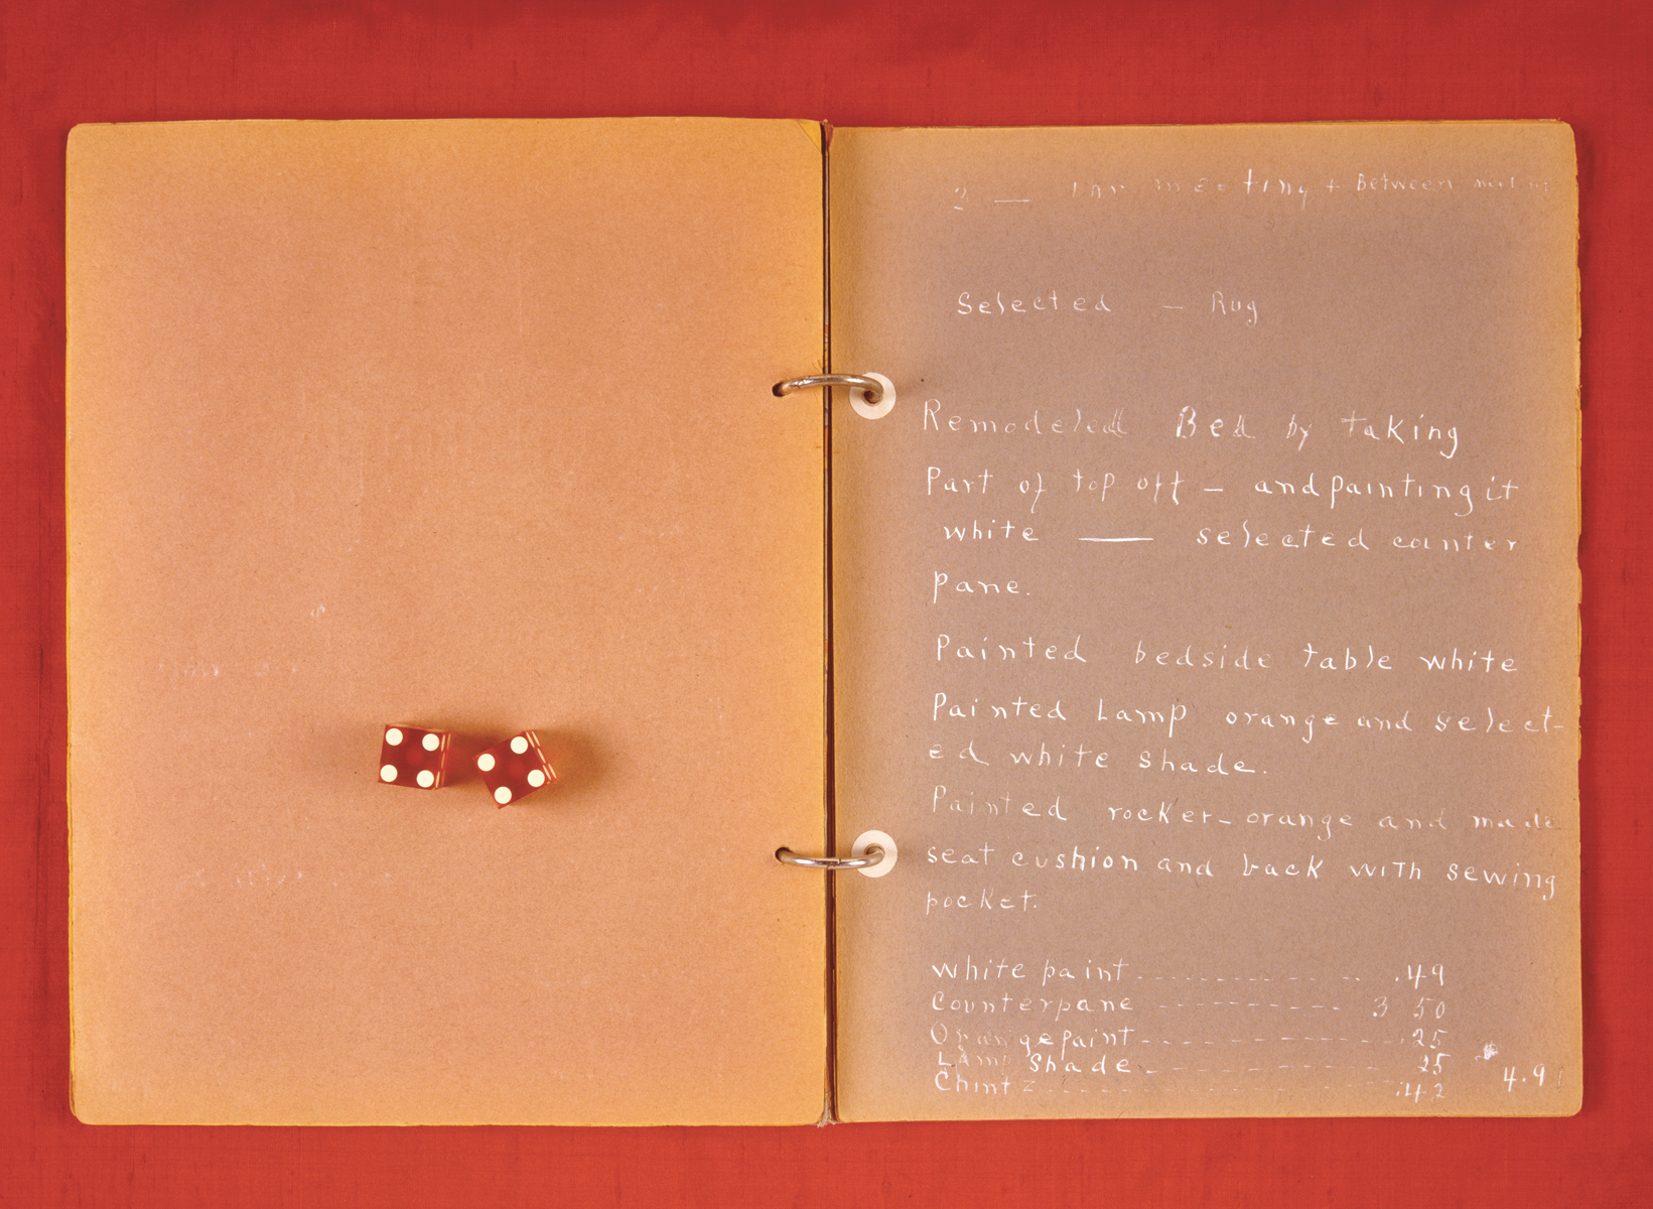 2 — meeting + Between
Selected — Rug
Remodeled Bed by taking
Part of top off — and painting it
white — selected counter
pane.
Painted bedside table white
Painted Lamp orange and select-
ed white shade.
Painted rocker - orange and made
seat cushion and back with sewing
pocket.
white paint - - - - - - - - - - - - - .49
Counterpane - - - - - - - - - - - 3 50
Orange paint - - - - - - - - - - - - - .25
Lamp shade - - - - - - - - - - - - 25
Chintz - - - - - - - - - - - - - - - .42
4.91